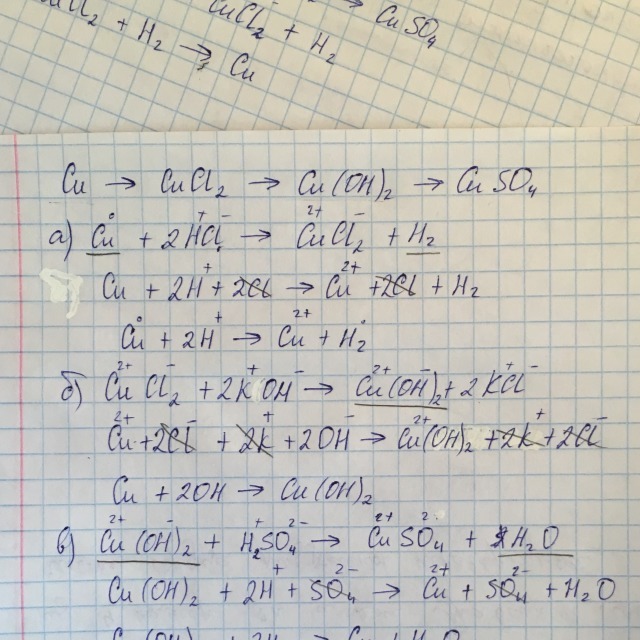 CuCl₂ + H₂ → CuSO₄
Cl₂ + H₂ → Cu
Cu → CuCl₂ → Cu(OH)₂ → CuSO₄
а) Cu⁰ + 2H⁺Cl⁻ → Cu²⁺Cl₂⁻ + H₂
Cu + 2H⁺ + 2Cl → Cu²⁺ + 2Cl + H₂
Cu⁰ + 2H⁺ → Cu²⁺ + H₂⁰
б) Cu²⁺Cl₂⁻ + 2K⁺OH⁻ → Cu²⁺(OH)₂⁻ + 2K⁺Cl⁻
Cu²⁺ + 2Cl⁻ + 2K⁺ + 2OH⁻ → Cu²⁺(OH)₂ + 2K⁺ + 2Cl⁻
Cu + 2OH → Cu(OH)₂
в) Cu²⁺(OH)₂⁻ + H₂⁺SO₄²⁻ → Cu²⁺SO₄²⁻ + H₂O
Cu(OH)₂ + 2H⁺ + SO₄²⁻ → Cu²⁺ + SO₄²⁻ + H₂O